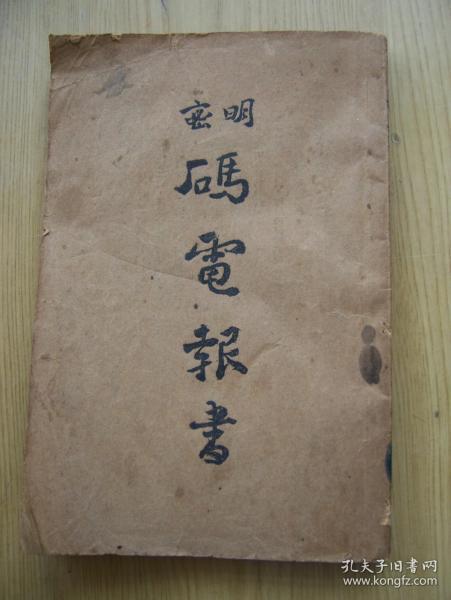 明密
碼電報書
孔夫子旧书网
www.kongfz.com